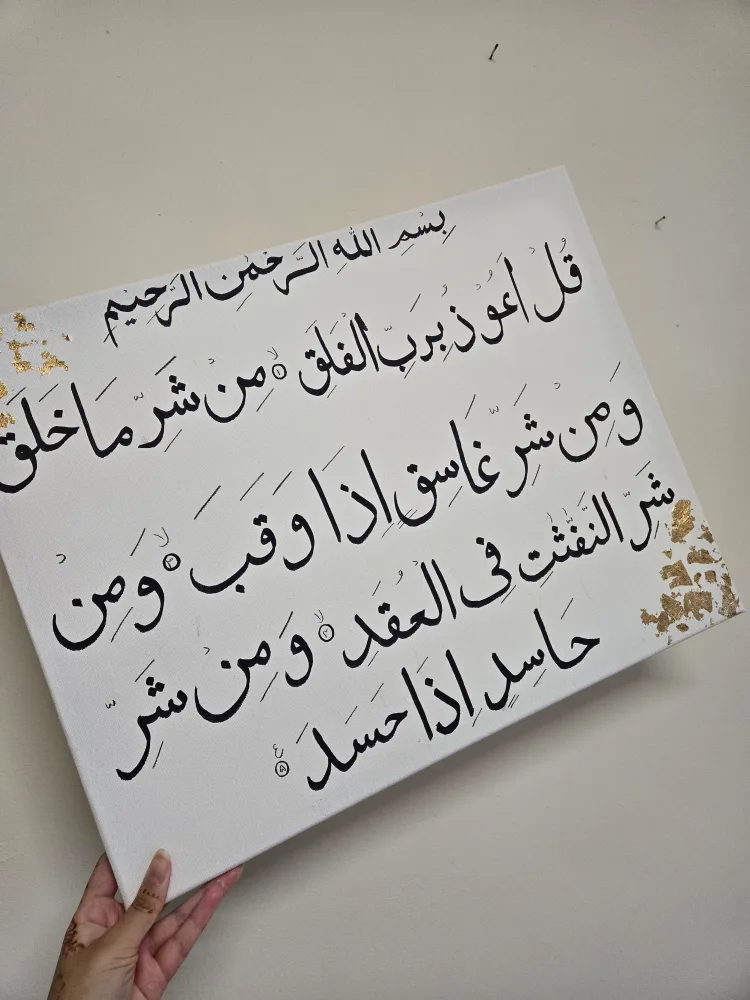 بِسْمِ اللهِ الرَّحْمٰنِ الرَّحِيْمِ
قُلْ اَعُوْذُ بِرَبِّ الْفَلَقِ ۙ﴿۱﴾ مِنْ شَرِّ مَا خَلَقَ
وَ مِنْ شَرِّ غَاسِقٍ اِذَا وَقَبَ ۙ﴿۳﴾ وَ مِنْ
شَرِّ النَّفّٰثٰتِ فِى الْعُقَدِ ۙ﴿۴﴾ وَ مِنْ شَرِّ
حَاسِدٍ اِذَا حَسَدَ ﴿۵﴾ ع